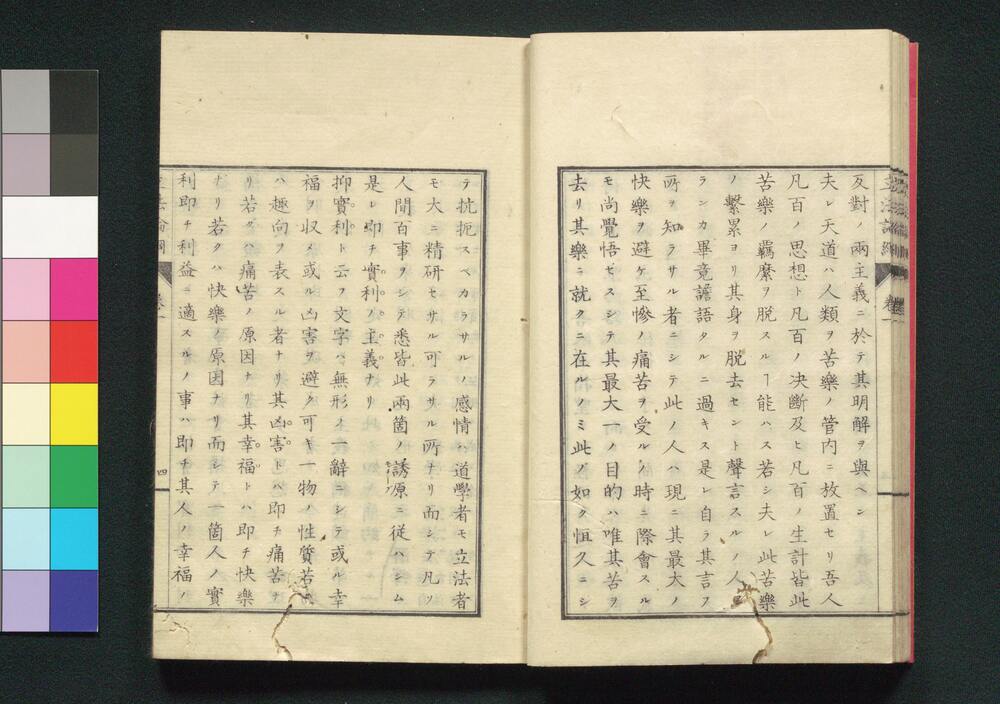 反對ノ兩主義ニ於テ其明解ヲ與ヘン
夫レ天道ハ人類ヲ苦樂ノ管内ニ放置セリ吾人
凡百ノ思想ト凡百ノ决斷及ヒ凡百ノ生計皆此
苦樂ノ羈縻ヲ脱スルヿ能ハス若シ夫レ此苦樂
ノ繫累ヨリ其身ヲ脱去セント聲言スルノ人
ランカ畢竟譫語タルニ過キス是レ自ラ其言フ
所ヲ知ラサル者ニシテ此ノ人ハ現ニ其最大ノ
快樂ヲ避ケ至慘ノ痛苦ヲ受ルノ時ニ際會スル
モ尚覺悟セスシテ其最大一ノ目的ハ唯其苦ヲ
去リ其樂ニ就クニ在ルノミ此ノ如ク恒久ニシ
テ抗扼スベカラサルノ感情ハ道學者モ立法者
モ大ニ精研セサル可ラサル所ナリ而シテ凡ソ
人間百事ヲシテ悉皆此兩箇ノ誘原ニ從ハシム
是レ即チ實利ノ主義ナリ
抑實利ト云フ文字ハ無形ノ一辭ニシテ或ル幸
福ヲ収メ或ル凶害ヲ避ク可キ一物ノ性質若ク
ハ趣向ヲ表スル者ナリ其凶害トハ即チ痛苦ナ
リ若クハ痛苦ノ原因ナリ其幸福トハ即チ快樂
ナリ若クハ快樂ノ原因ナリ而シテ一箇人ノ實
利即チ利益ニ適スルノ事ハ即チ其人ノ幸福ノ
四